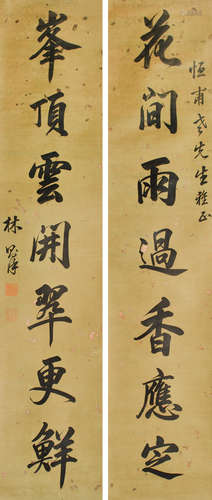 恒甫老先生雅正
花間雨過香應定
峯頂雲開翠更鮮
林